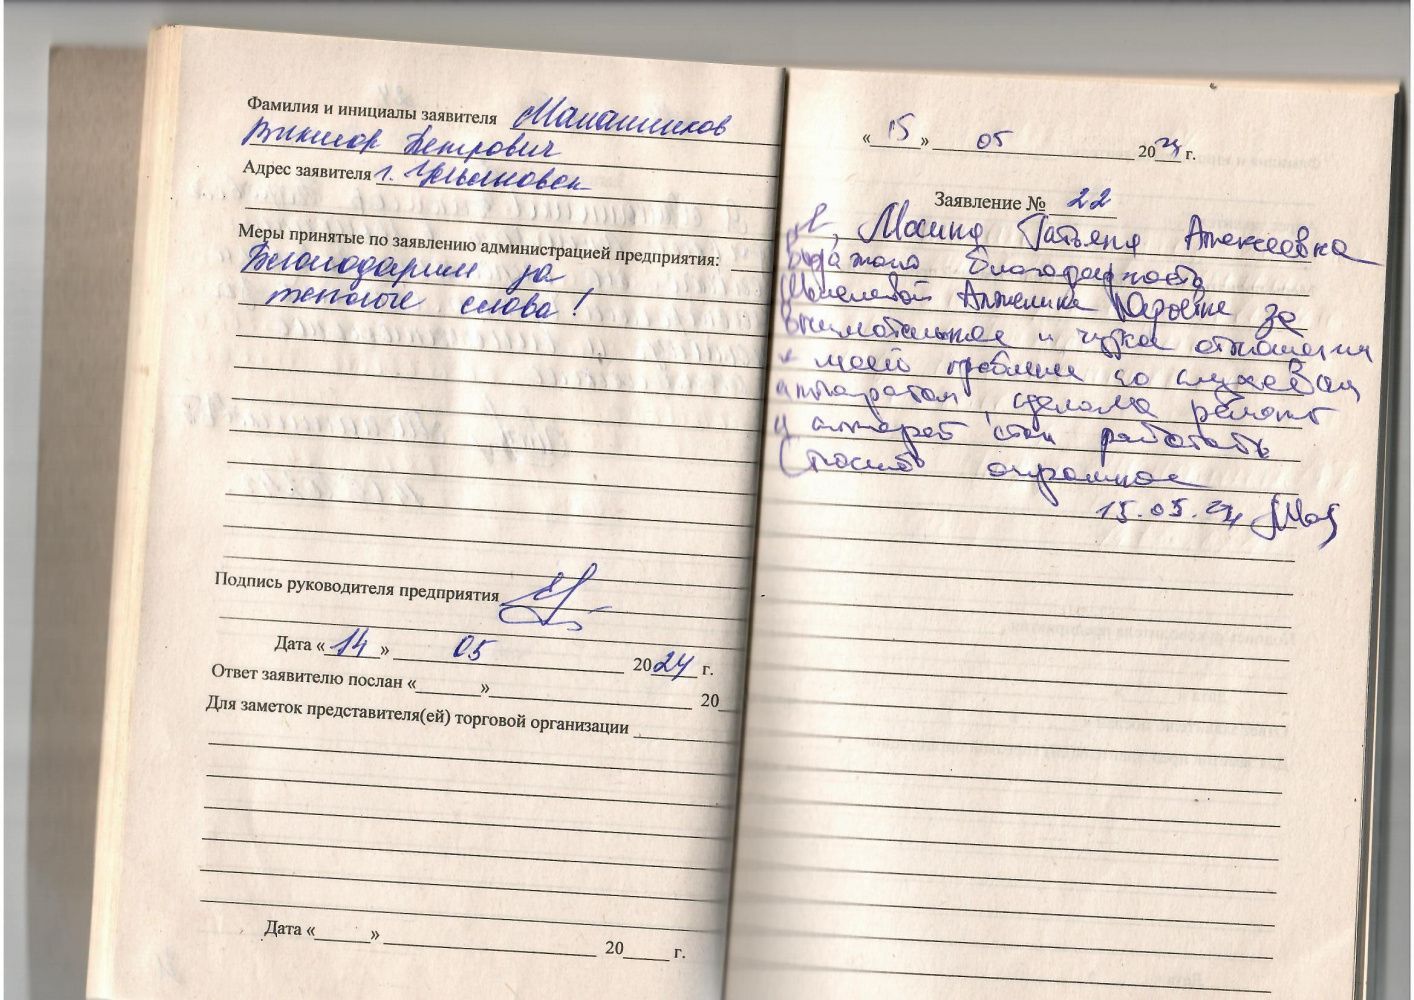 Фамилия и инициалы заявителя Малашников
Виктор Петрович
Адрес заявителя г. Ульяновск
Меры принятые по заявлению администрацией предприятия:
Благодарим за
теплые слова!
Подпись руководителя предприятия
Дата «14» 05 2024 г.
Ответ заявителю послан «______»____________ 20__
Для заметок представителя(ей) торговой организации
Дата «______» ____________ 20____ г.
«15» 05 2024 г.
Заявление № 22
Я, Мосина Татьяна Алексеевна
выражаю благодарность
Анжелике Юрьевне за
внимательное и чуткое отношения
к моей проблеме со слуховым
аппаратом, сделала ремонт
и аппарат стал работать
Спасибо огромное
15.05.24